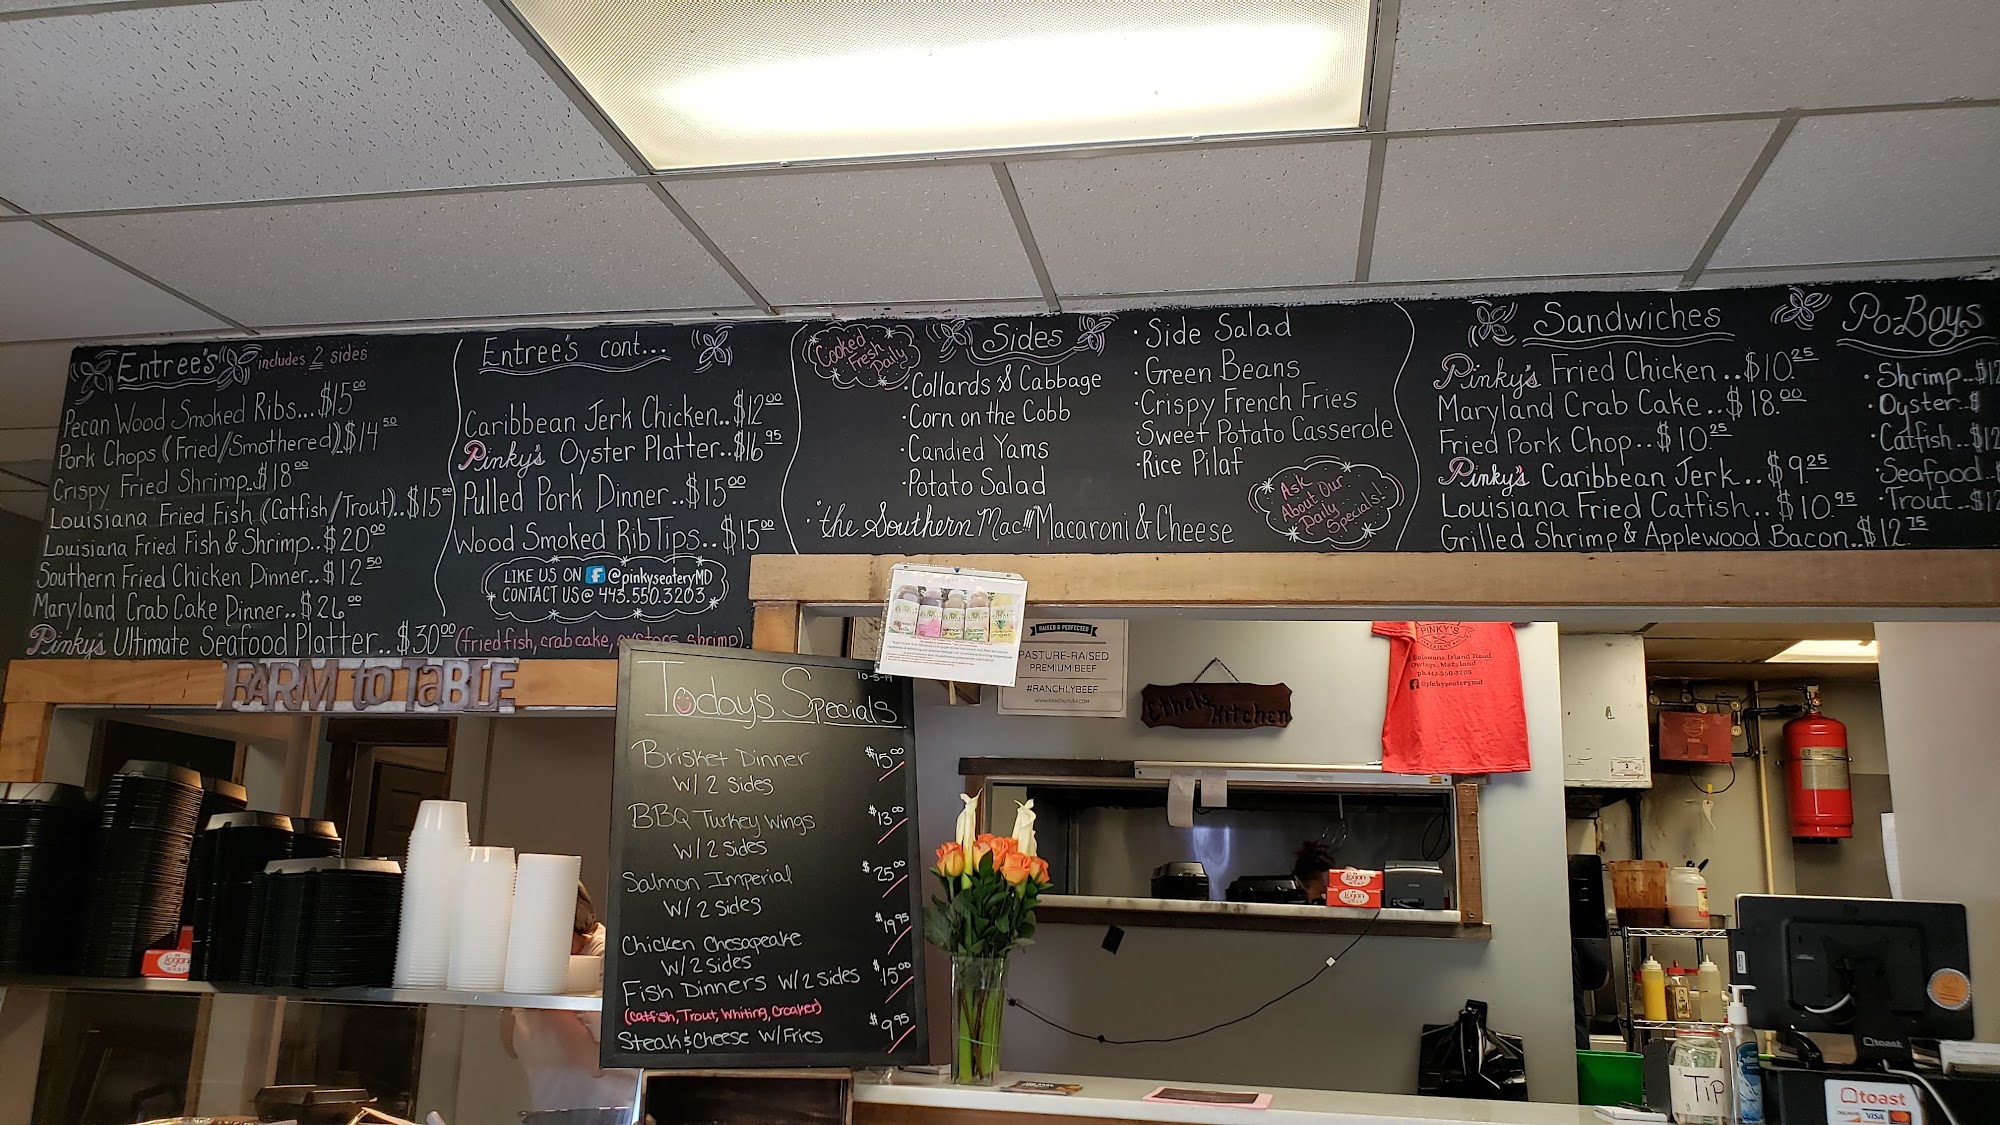 Entree's includes 2 sides
Pecan Wood Smoked Ribs...$15.00
Pork Chops (Fried/Smothered)..$14.50
Crispy Fried Shrimp..$18.00
Louisiana Fried Fish (Catfish/Trout)..$15.00
Louisiana Fried Fish & Shrimp..$20.00
Southern Fried Chicken Dinner..$12.50
Maryland Crab Cake Dinner..$26.00
Pinky's Ultimate Seafood Platter..$30.00 (fried fish, crab cake, oysters, shrimp)
Entree's cont...
Caribbean Jerk Chicken..$12.00
Pinky's Oyster Platter..$16.95
Pulled Pork Dinner..$15.00
Wood Smoked Rib Tips..$15.00
LIKE US ON f @pinkyseateryMD
CONTACT US@ 443.550.3203
Cooked
Fresh
Daily
Sides
·Collards & Cabbage
·Corn on the Cobb
·Candied Yams
·Potato Salad
·"the Southern Mac" Macaroni & Cheese
·Side Salad
·Green Beans
·Crispy French Fries
·Sweet Potato Casserole
·Rice Pilaf
Ask
About Our
Daily
Specials!
Sandwiches
Pinky's Fried Chicken..$10.25
Maryland Crab Cake..$18.00
Fried Pork Chop..$10.25
Pinky's Caribbean Jerk..$9.25
Louisiana Fried Catfish..$10.95
Grilled Shrimp & Applewood Bacon..$12.75
Po-Boys
·Shrimp..$12
·Oyster..$
·Catfish..$12
·Seafood..$
·Trout..$12
FARM to TaBLE
Today's Specials
10-5-19
Brisket Dinner $15.00
W/ 2 Sides
BBQ Turkey Wings $13.00
W/ 2 Sides
Salmon Imperial $25.00
W/ 2 Sides
Chicken Chesapeake $19.95
W/ 2 Sides
Fish Dinners W/ 2 Sides $15.00
(Catfish, Trout, Whiting, Croaker)
Steak & Cheese W/ Fries $9.95
RAISED & PERFECTED
PASTURE-RAISED
PREMIUM BEEF
#RANCHLYBEEF
WWW.RANCHLYUSA.COM
Ethel's Kitchen
PINKY'S
EATERY
Solomons Island Road
Owings, Maryland
ph:443-550-3203
f @pinkyseaterymd
Logan
WRAP
Logan
Logan
TIP
toast
toast
VISA